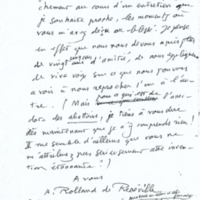 chement au cours d'un entretien que
je souhaite proche, les moments où
vous m'avez déçu ou blessé. Je pense
en effet que nous nous devons après plus
de vingt ans d'amitié, de nous expliquer
de vive voix sur ce que nous pouvons
avoir à nous reprocher l'un à l'au-
tre. (Mais
des allusions, je tiens à vous dire
dès maintenant que je n'y comprends rien !
Il me semble d'ailleurs que vous ne
m'attribuez pas sérieusement cette inten-
tion étonnante !)
A vous
A. Rolland de Renéville